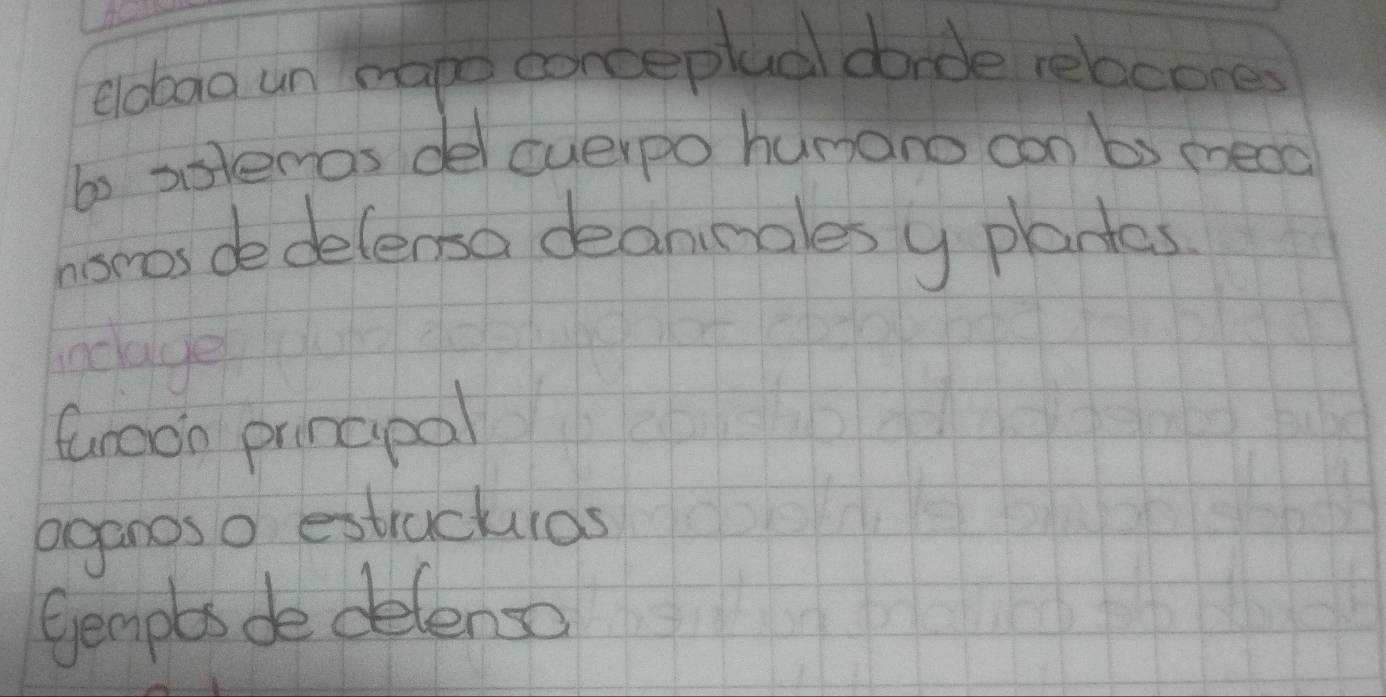 elabora un mapa conceptual donde relaciones
los sistemas del cuerpo humano con los meca
nismos de defensa de animales y plantas.
incluye
función principal
organos o estructuras
Ejemplos de defensa